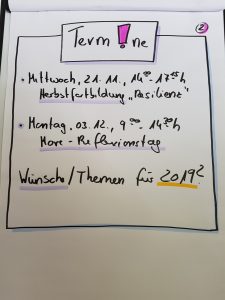 Term!ne
2
• Mittwoch, 21.11., 14⁰⁰-17¹⁵h
Herbstfortbildung „Resilienz"
• Montag, 03.12., 9⁰⁰- 14³⁰h
- Reflexionstag
Wünsche/Themen für 2019?